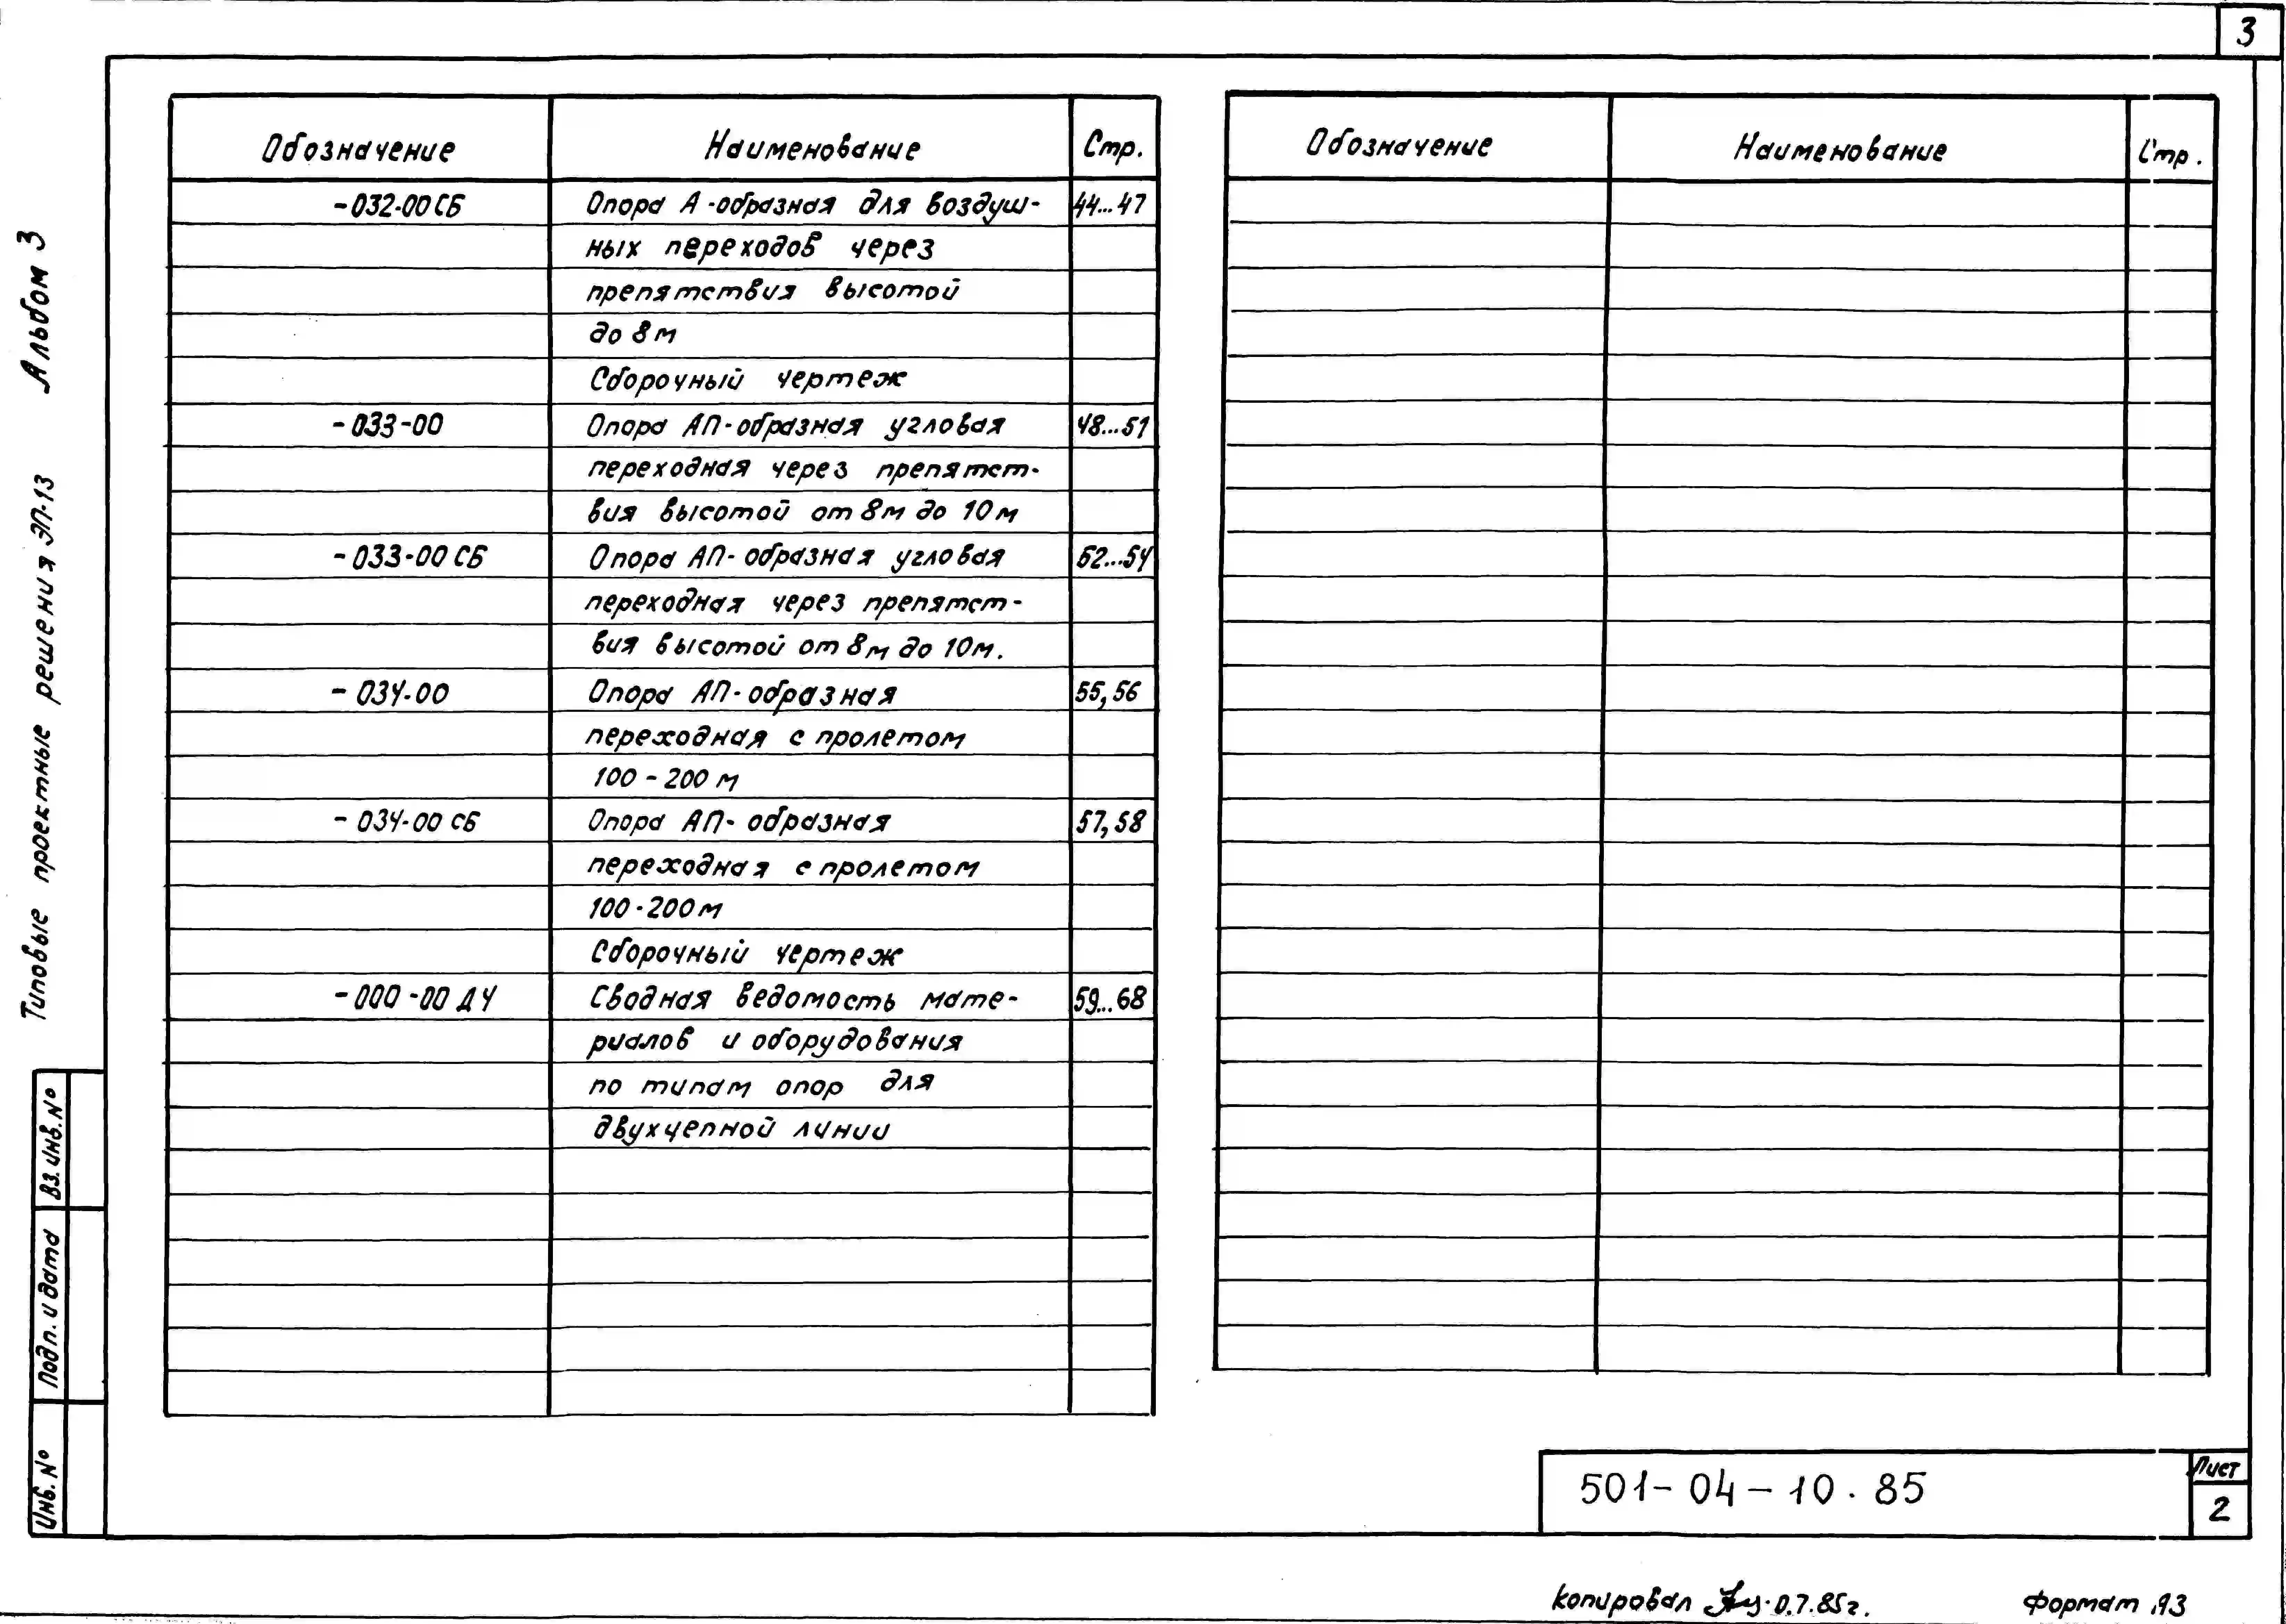 3
Обозначение Наименование Стр.
-032-00 СБ Опора А-образная для воздуш- 44...47
ных переходов через
препятствия высотой
до 8м
Сборочный чертеж
-033-00 Опора АП-образная угловая 48...51
переходная через препятст-
вия высотой от 8м до 10м
-033-00 СБ Опора АП-образная угловая 52...54
переходная через препятст-
вия высотой от 8м до 10м.
-034-00 Опора АП-образная 55,56
переходная с пролетом
100-200 м
-034-00 СБ Опора АП-образная 57,58
переходная с пролетом
100-200м
Сборочный чертеж
-000-00 Д4 Сводная ведомость мате- 59...68
риалов и оборудования
по типам опор для
двухцепной линии
Обозначение Наименование Стр.
Альбом 3
Типовые проектные решения ЭП-13
Вз. инв. №
Подп. и дата
Инв. №
501-04-10.85
Лист
2
Копировал 0.7.85г.
Формат А3